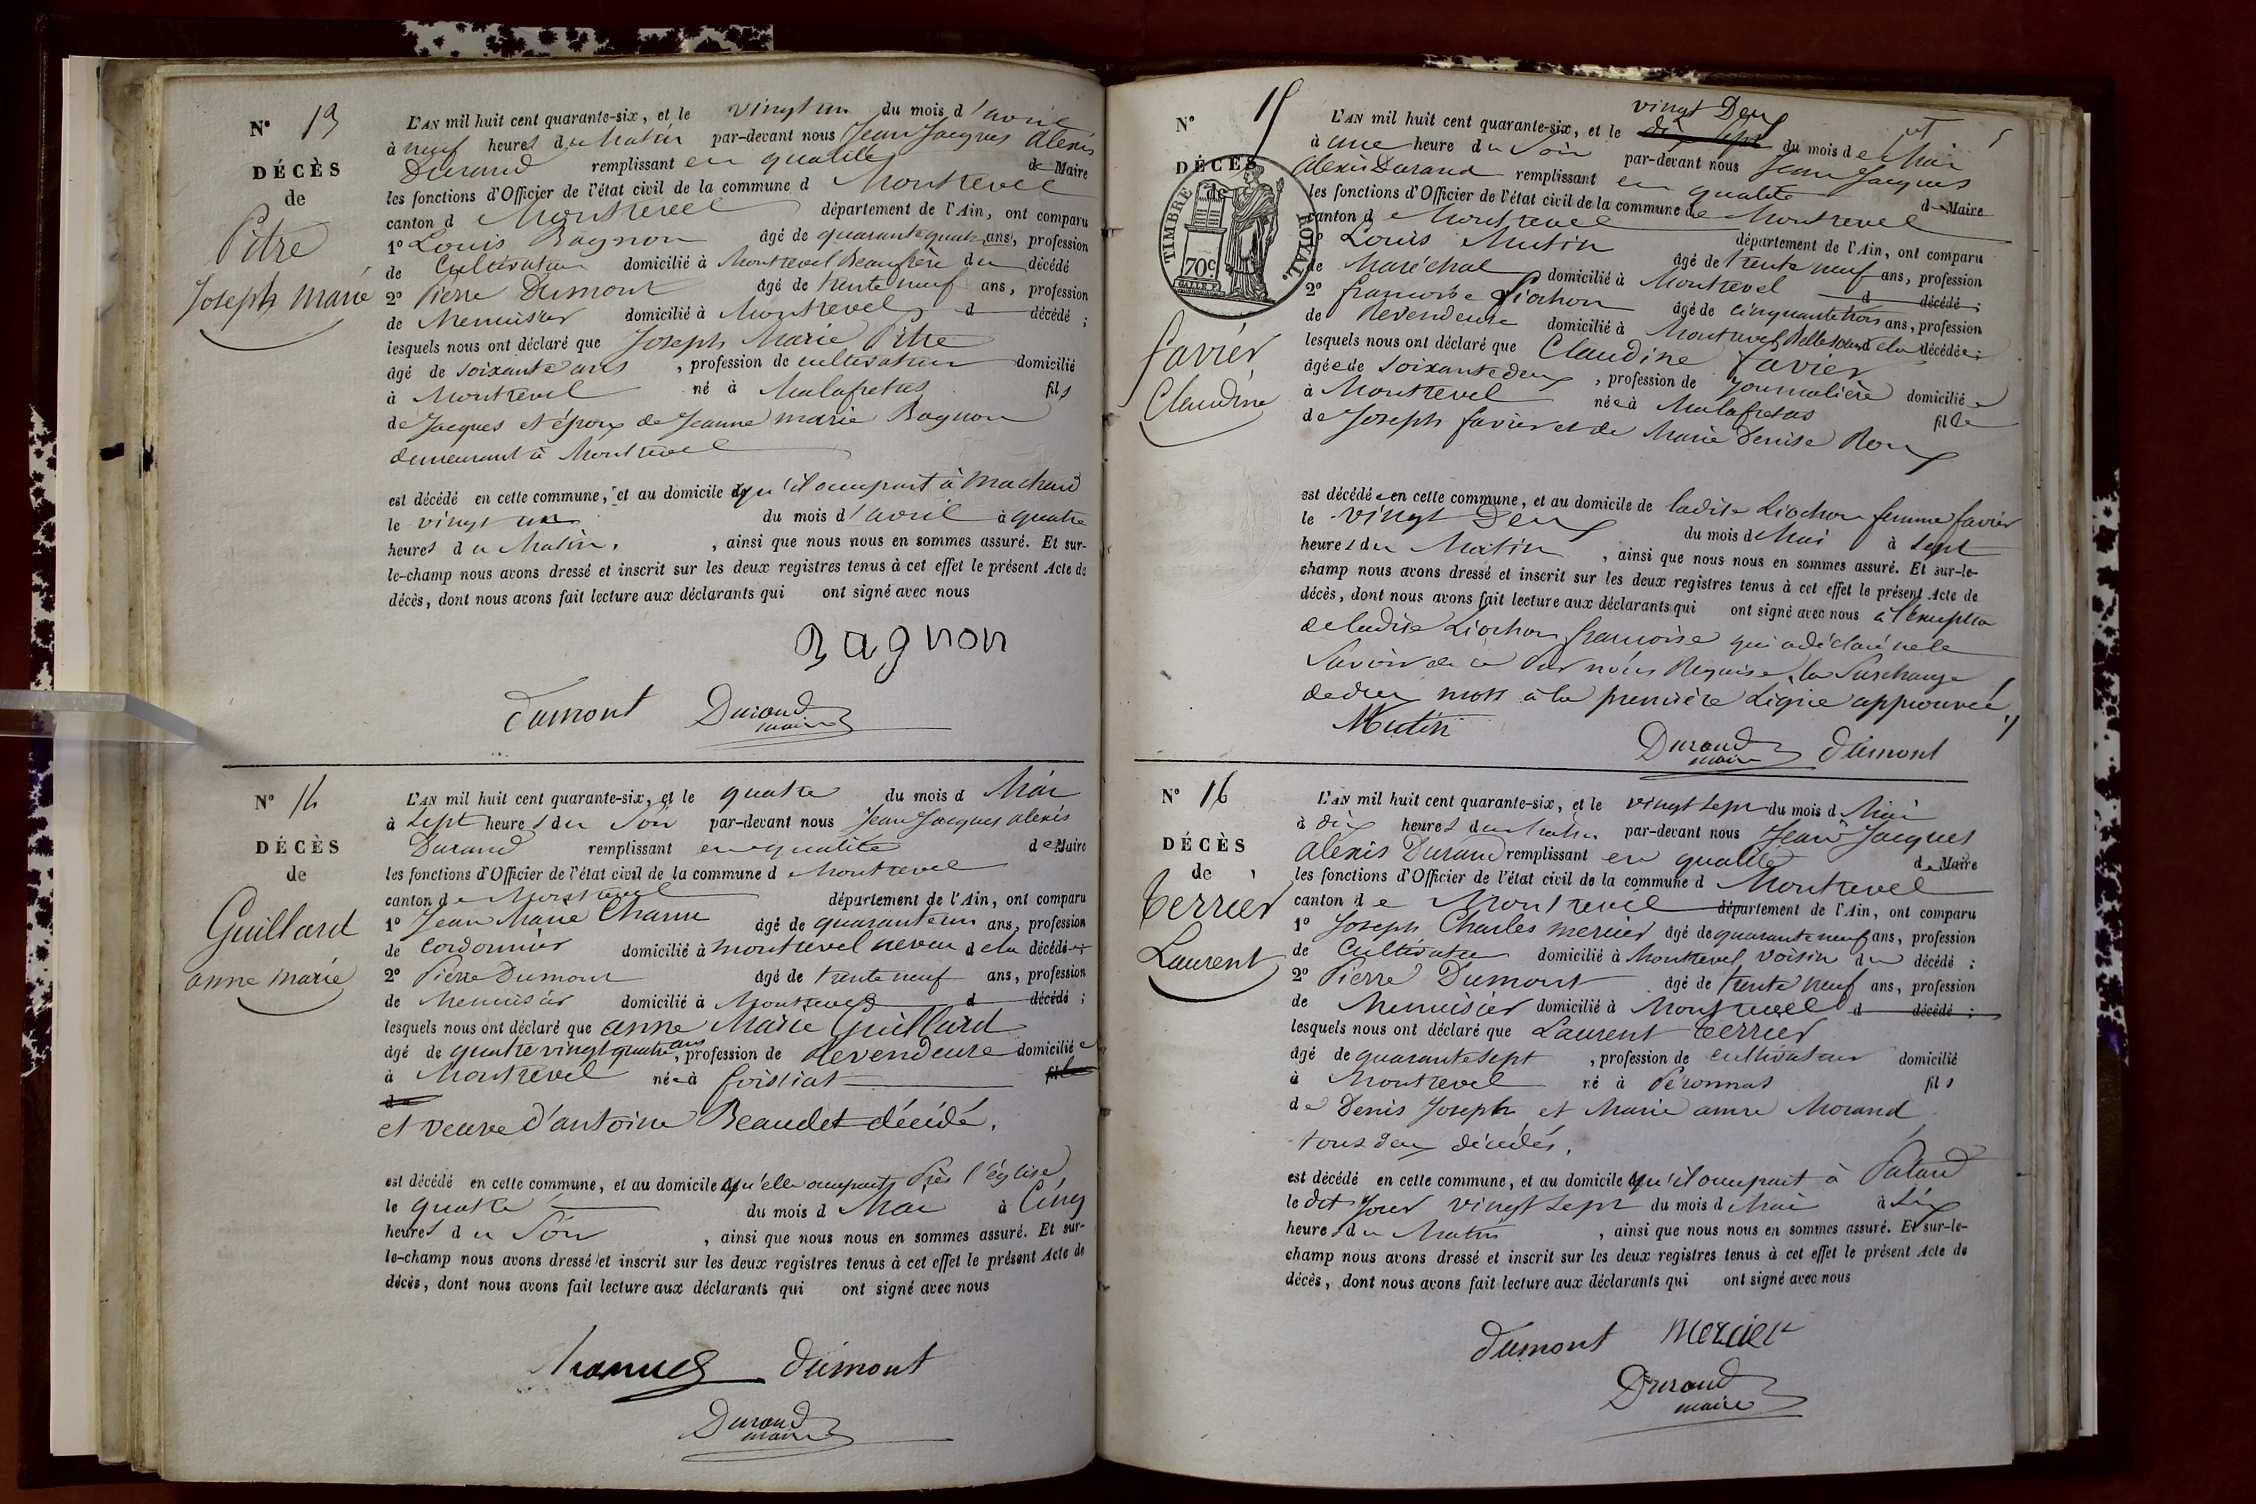 N° 13
DÉCÈS
de
Pitre
Joseph Marie
L'AN mil huit cent quarante-six, et le vingt un du mois d'avril
à neuf heures du Matin par-devant nous Jean Jacques Alexis
Durand remplissant en qualité de Maire
les fonctions d'Officier de l'état civil de la commune d Montrevel
canton de Montrevel département de l'Ain, ont comparu
1° Louis Bagnon âgé de quarante quatre ans, profession
de Cultivateur domicilié à Montrevel Beaufrère du décédé
2° Pierre Dumont âgé de trente neuf ans, profession
de Menuisier domicilié à Montrevel d décédé ;
lesquels nous ont déclaré que Joseph Marie Pitre
âgé de soixante ans , profession de cultivateur domicilié
à Montrevel né à Malafretas fils
de Jacques et époux de Jeanne marie Bagnon
demeurant à Montrevel
est décédé en cette commune, et au domicile qu'il occupait à Machard
le vingt un du mois d'avril à quatre
heures du Matin. , ainsi que nous nous en sommes assuré. Et sur-
le-champ nous avons dressé et inscrit sur les deux registres tenus à cet effet le présent Acte de
décès, dont nous avons fait lecture aux déclarants qui ont signé avec nous
Bagnon
Dumont Durand
maire
N° 14
DÉCÈS
de
Guillard
anne marie
L'AN mil huit cent quarante-six, et le quatre du mois d Mai
à Sept heures du Soir par-devant nous Jean Jacques alexis
Durand remplissant en qualité de Maire
les fonctions d'Officier de l'état civil de la commune d Montrevel
canton de Montrevel département de l'Ain, ont comparu
1° Jean Marie âgé de quarante un ans, profession
de Cordonnier domicilié à montrevel neveu de la décédée
2° Pierre Dumont âgé de trente neuf ans, profession
de Menuisier domicilié à Montrevel d décédé ;
lesquels nous ont déclaré que anne Marie Guillard
âgé de quatre vingt quatre ans, profession de Revendeuse domiciliée
à Montrevel née à foissiat fille
de
et veuve d'antoine Beaudet décédé.
est décédé en cette commune, et au domicile qu'elle occupait Près l'église
le quatre du mois d Mai à Cinq
heures du Soir , ainsi que nous nous en sommes assuré. Et sur-
le-champ nous avons dressé et inscrit sur les deux registres tenus à cet effet le présent Acte de
décès, dont nous avons fait lecture aux déclarants qui ont signé avec nous
Dumont
Durand
maire
N° 15
DÉCÈS
de
TIMBRE ROYAL.
70c
favier
Claudine
vingt Deux
L'AN mil huit cent quarante-six, et le dix sept du mois de Mai
à une heure du Soir par-devant nous Jean Jacques
Alexis Durand remplissant en qualité de Maire
les fonctions d'Officier de l'état civil de la commune de Montrevel
canton de Montrevel département de l'Ain, ont comparu
1° Louis Mutin âgé de trente neuf ans, profession
de Maréchal domicilié à Montrevel d décédé ;
2° francoise Liochon âgé de cinquante trois ans, profession
de Revendeuse domicilié à Montrevel Bellesoeur de la décédée ;
lesquels nous ont déclaré que Claudine favier
âgée de soixante deux , profession de Journalière domiciliée
à Montrevel née à Malafretas fille
de Joseph favier et de Marie Denise Roux
est décédée en cette commune, et au domicile de ladite Liochon femme favier
le vingt Deux du mois de Mai à sept
heures du Matin , ainsi que nous nous en sommes assuré. Et sur-le-
champ nous avons dressé et inscrit sur les deux registres tenus à cet effet le présent Acte de
décès, dont nous avons fait lecture aux déclarants qui ont signé avec nous à l'exception
de ladite Liochon francoise qui a déclaré ne le
Savoir de ce Par nous Requise, la Surcharge
de deux mots à la première Ligne approuvée
Mutin
Durand Dumont
maire
N° 16
DÉCÈS
de
Terrier
Laurent
L'AN mil huit cent quarante-six, et le vingt sept du mois d Mai
à dix heures du Matin par-devant nous Jean Jacques
Alexis Durand remplissant en qualité de Maire
les fonctions d'Officier de l'état civil de la commune d Montrevel
canton de Montrevel département de l'Ain, ont comparu
1° Joseph Charles mercier âgé de quarante neuf ans, profession
de Cultivateur domicilié à Montrevel voisin du décédé ;
2° Pierre Dumont âgé de trente neuf ans, profession
de Menuisier domicilié à Montrevel d décédé ;
lesquels nous ont déclaré que Laurent Terrier
âgé de quarante sept , profession de cultivateur domicilié
à Montrevel né à Péronnas fils
de Denis Joseph et Marie anne Morand
tous deux décédés.
est décédé en cette commune, et au domicile qu'il occupait à
le dit Jour vingt sept du mois d Mai à Six
heures du Matin , ainsi que nous nous en sommes assuré. Et sur-le-
champ nous avons dressé et inscrit sur les deux registres tenus à cet effet le présent Acte de
décès, dont nous avons fait lecture aux déclarants qui ont signé avec nous
Dumont Mercier
Durand
maire